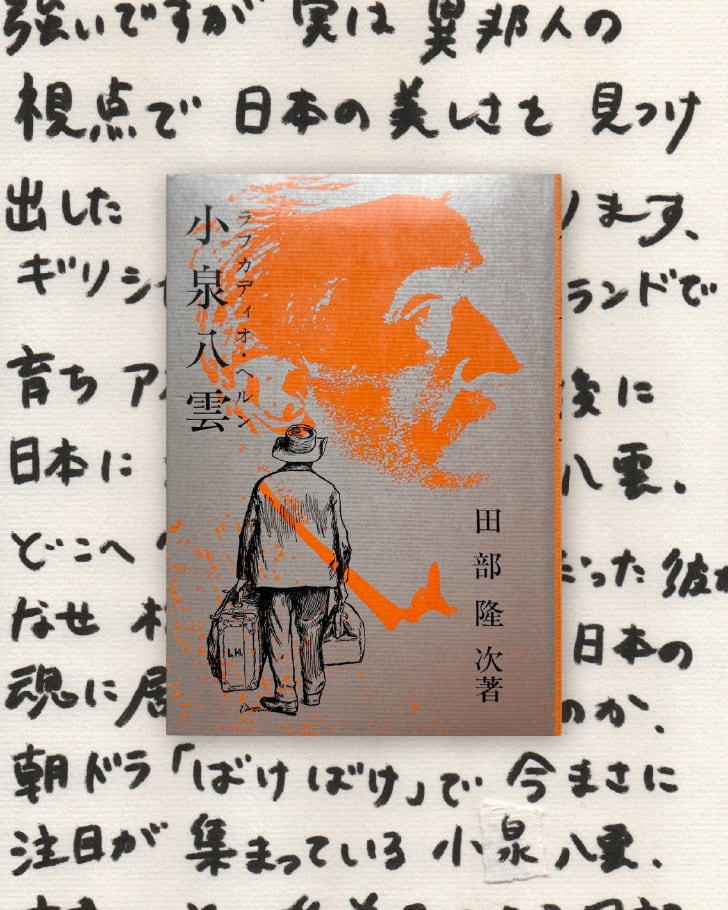 強いですが 実は 異邦人の
視点で 日本の美しさを 見つけ
出した ります、
ギリシ ランドで
育ち ア 後に
日本に 八雲。
どこへ だった
なぜ 日本の
魂に のか、
朝ドラ「ばけばけ」で 今まさに
注目が 集まっている 小泉八雲、
ラフカディオ・ヘルン
小泉八雲
田部隆次著
L.H.